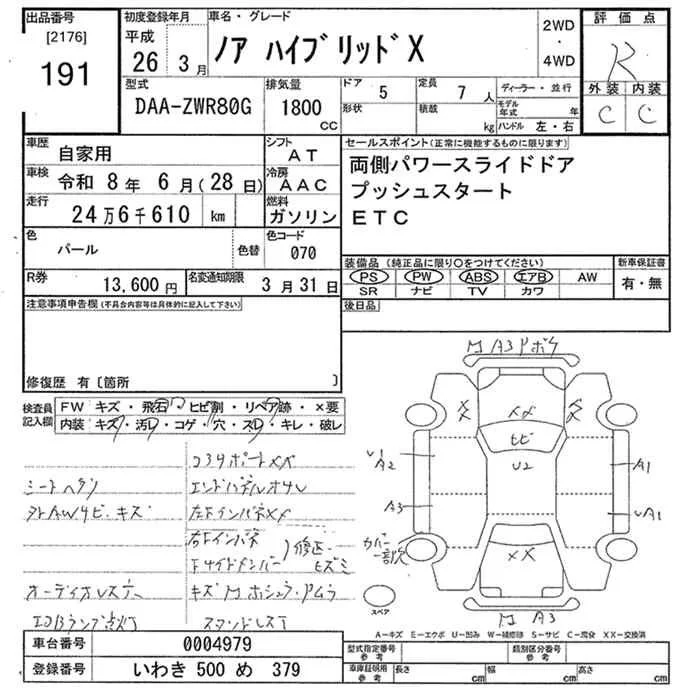 出品番号
[2176]
191
初度登録年月
平成
26 3月
車名・グレード
ノア ハイブリッドX
2WD
・
4WD
評価点
R
外装 内装
C C
型式
DAA-ZWR80G
排気量
1800
CC
ドア 5
形状
定員 7 人
積載
kg
ディーラー・並行
モデル年式 年
ハンドル 左・右
車歴
自家用
シフト
AT
車検 令和 8年 6月(28日)
冷房
AAC
走行
24万6千610 km
燃料
ガソリン
色
パール
色替
色コード
070
R券
13,600円
名変通知期限
3月31日
セールスポイント(正常に機能するものに限ります)
両側パワースライドドア
プッシュスタート
ETC
装備品 (純正品に限り○をつけてください)
PS PW ABS エアB AW
SR ナビ TV カワ
新車保証書
有・無
後日品
注意事項申告欄(不具合内容等は具体的に記入して下さい)
修復歴 有〔箇所 〕
検査員記入欄
FW キズ・飛石・ヒビ割・リペア跡・×要
内装 キズ・汚レ・コゲ・穴・スレ・キレ・破レ
コアサポートXX
エンドパネルオサレ
左FインパネXX
右Fインパネ
Fサイドメンバー
修正
ヒズミ
オーディオレス
エアBランプ点灯
スマンドレス
A3
XX
XX
XX
ヒビ
U2
A2
A1
A3
A1
カバー
一部欠
XX
A3
スペア
A-キズ E-エクボ U-凹み W-補修跡 S-サビ C-腐食 XX-交換済
車台番号 0004979
登録番号 いわき 500 め 379
型式指定番号
参考
類別区分番号
参考
車庫証明用
参考
長さ cm
幅 cm
高さ cm